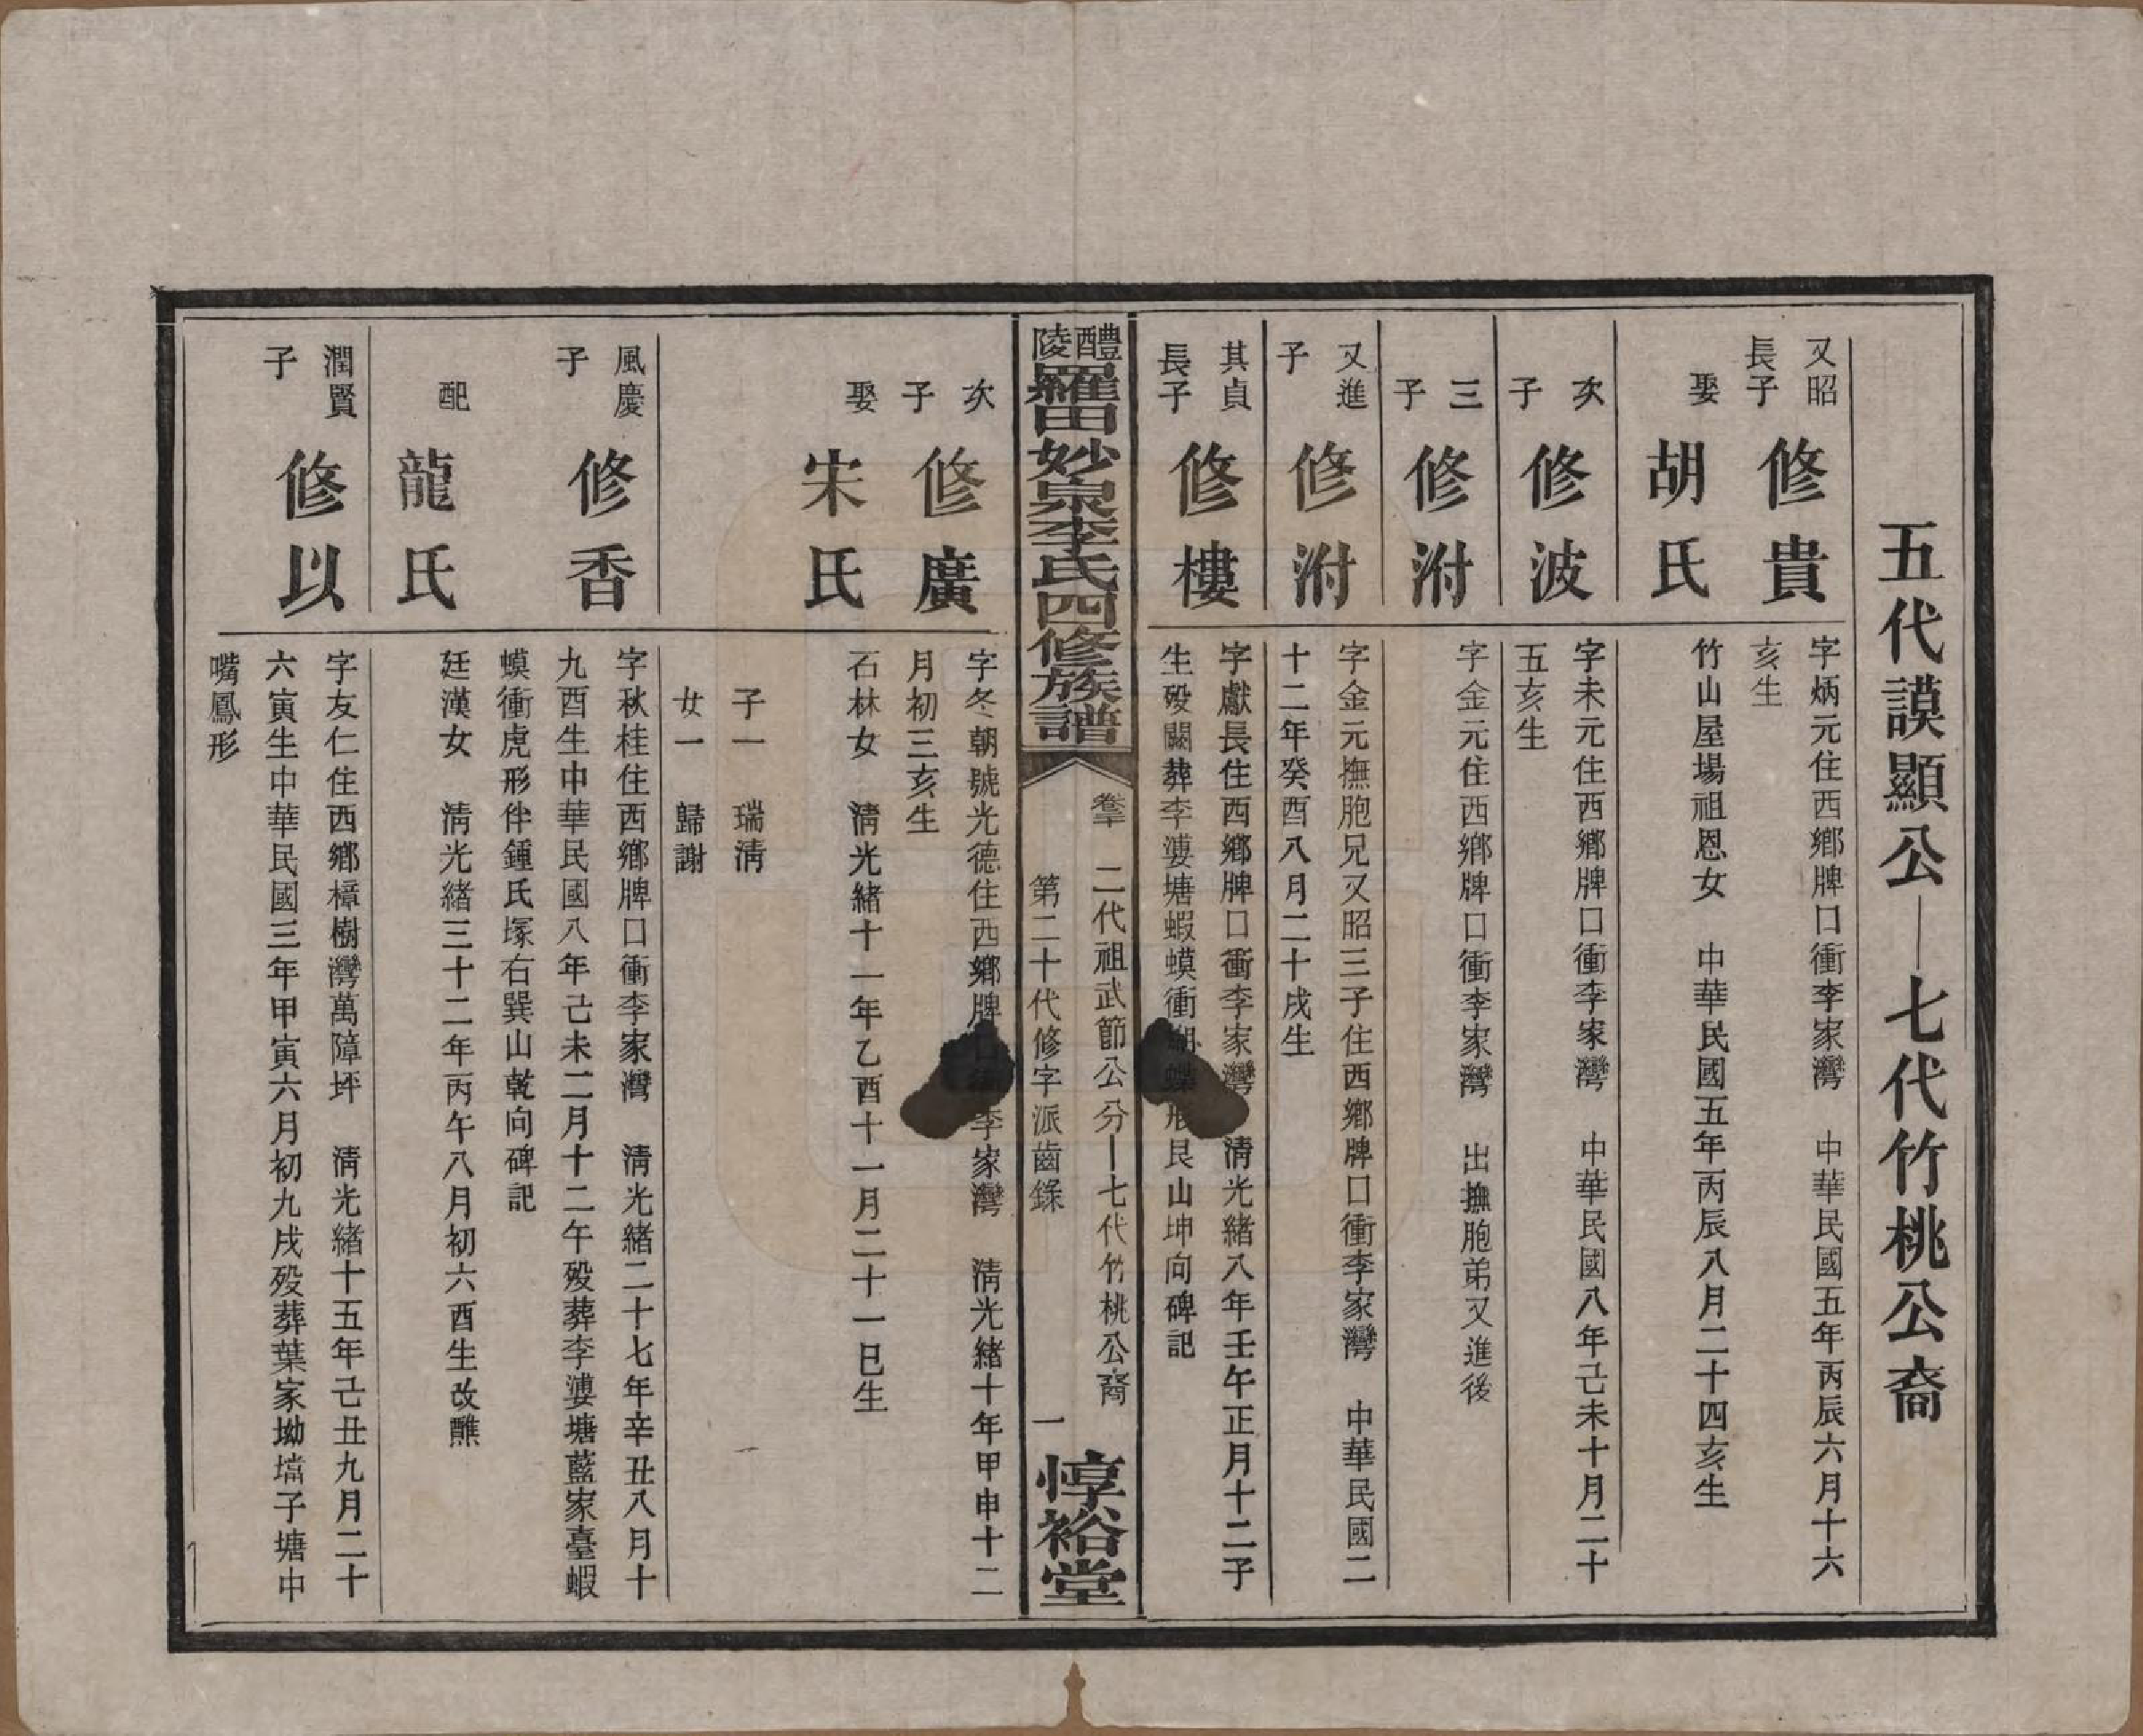 五代謨顯公—七代竹桃公裔
又昭
長子
修貴
字炳元住西鄉牌口衝李家灣　中華民國五年丙辰六月十六
亥生
娶
胡氏
竹山屋場祖恩女　中華民國五年丙辰八月二十四亥生
次
子
修波
字未元住西鄉牌口衝李家灣　中華民國八年己未十月二十
五亥生
三
子
修泭
字金元住西鄉牌口衝李家灣　出撫胞弟又進後
又進
子
修泭
字金元撫胞兄又昭三子住西鄉牌口衝李家灣　中華民國二
十二年癸酉八月二十戌生
其貞
長子
修樓
字獻長住西鄉牌口衝李家灣　清光緒八年壬午正月十二子
生歿闕葬李漊塘蝦蟆衝蝴蝶形艮山坤向碑記
醴陵羅田妙泉李氏四修族譜
卷二　二代祖武節公分—七代竹桃公裔
第二十代修字派齒錄
一
惇裕堂
次
子
修廣
字冬朝號光德住西鄉牌口衝李家灣　清光緒十年甲申十二
月初三亥生
娶
宋氏
石林女　清光緒十一年乙酉十一月二十一巳生
子一　瑞清
女一　歸謝
風慶
子
修香
字秋桂住西鄉牌口衝李家灣　清光緒二十七年辛丑八月十
九酉生中華民國八年己未二月十二午歿葬李漊塘藍家臺蝦
蟆衝虎形伴鍾氏塚右巽山乾向碑記
配
龍氏
廷漢女　清光緒三十二年丙午八月初六酉生改醮
潤賢
子
修以
字友仁住西鄉樟樹灣萬障坪　清光緒十五年己丑九月二十
六寅生中華民國三年甲寅六月初九戌歿葬葉家坳壋子塘中
嘴鳳形